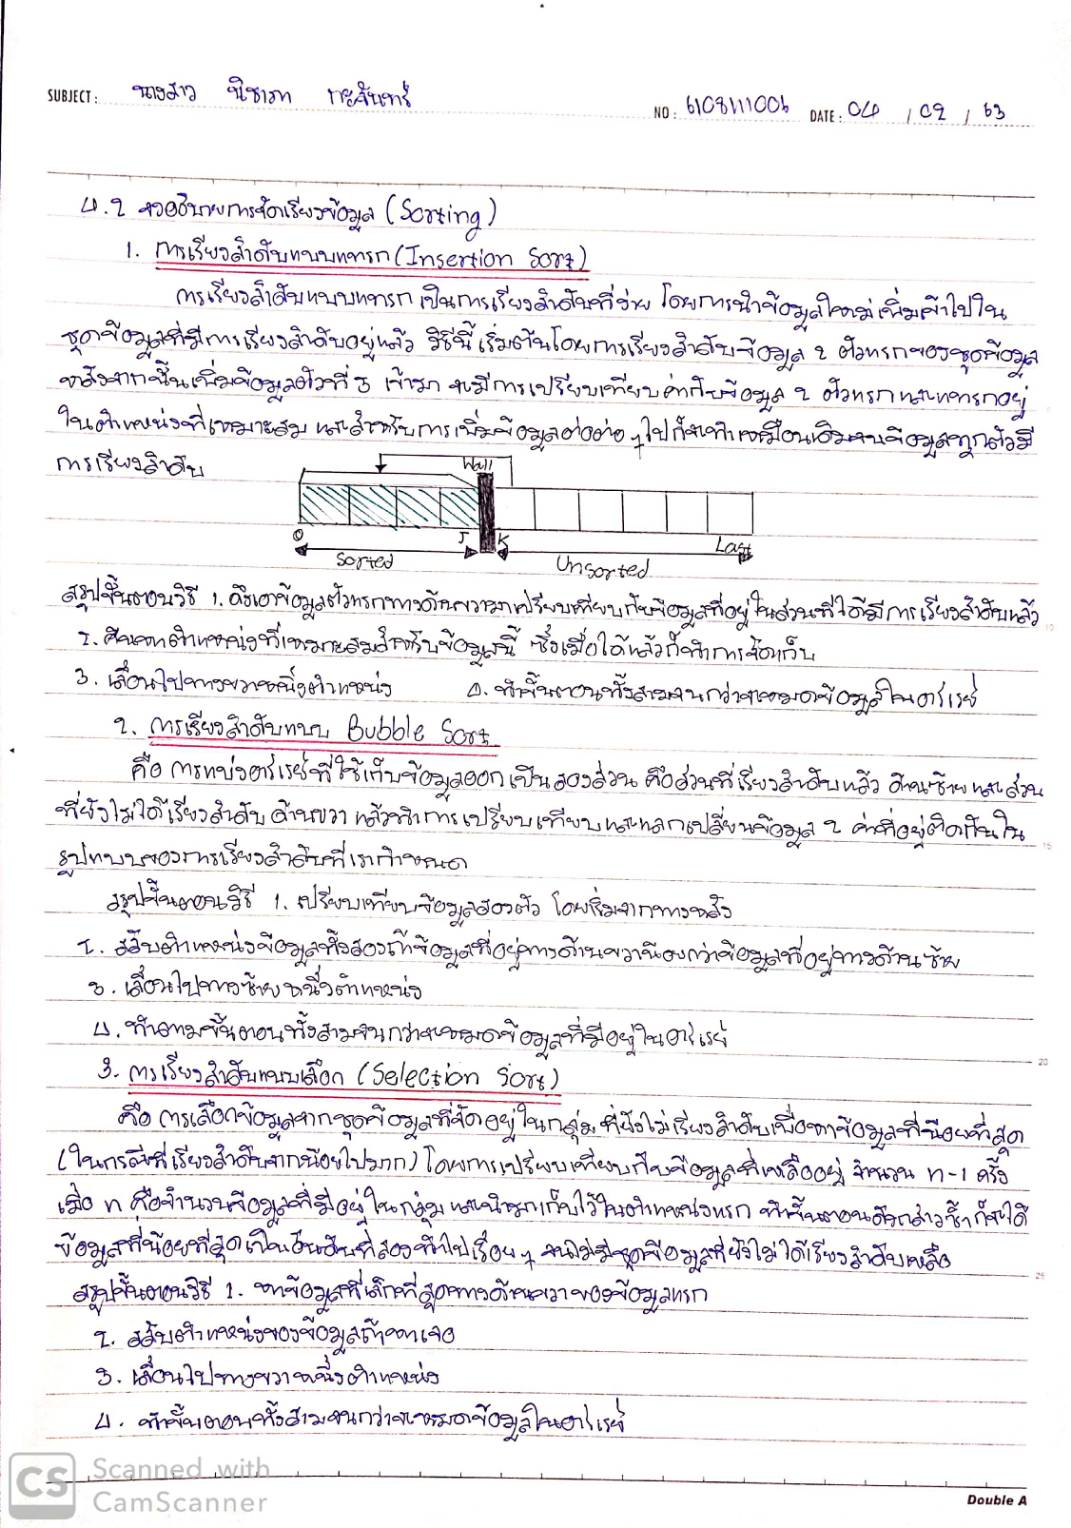 SUBJECT : นางสาว นิชาภา กะจันทร์
NO : 6108111006 DATE : 04 / 02 / 63
4.2 จงอธิบายการจัดเรียงข้อมูล (Sorting)
1. การเรียงลำดับแบบแทรก (Insertion Sort)
การเรียงลำดับแบบแทรก เป็นการเรียงลำดับที่ง่าย โดยการนำข้อมูลใหม่เพิ่มเข้าไปใน
ชุดข้อมูลที่มีการเรียงลำดับอยู่แล้ว วิธีนี้เริ่มต้นโดยการเรียงลำดับข้อมูล 2 ตัวแรกของชุดข้อมูล
หลังจากนั้นเพิ่มข้อมูลตัวที่ 3 เข้ามา จะมีการเปรียบเทียบค่ากับข้อมูล 2 ตัวแรกและแทรกอยู่
ในตำแหน่งที่เหมาะสม และสำหรับการเพิ่มข้อมูลต่อต่อๆ ไปก็จะทำเหมือนเดิมจนข้อมูลทุกตัวมี
การเรียงลำดับ
Wall
0 J K Last
Sorted Unsorted
สรุปขั้นตอนวิธี 1. ดึงเอาข้อมูลตัวแรกทางด้านขวามาเปรียบเทียบกับข้อมูลที่อยู่ในส่วนที่ได้มีการเรียงลำดับแล้ว
2. ค้นหาตำแหน่งที่เหมาะสมสำหรับข้อมูลนี้ ซึ่งเมื่อได้แล้วก็ทำการจัดเก็บ
3. เลื่อนไปทางขวาหนึ่งตำแหน่ง 4. ทำขั้นตอนทั้งสามจนกว่าจะหมดข้อมูลในอาร์เรย์
2. การเรียงลำดับแบบ Bubble Sort
คือ การแบ่งอาร์เรย์ที่ใช้เก็บข้อมูลออกเป็นสองส่วน คือส่วนที่เรียงลำดับแล้ว ด้านซ้าย และส่วน
ที่ยังไม่ได้เรียงลำดับ ด้านขวา แล้วทำการเปรียบเทียบและแลกเปลี่ยนข้อมูล 2 ค่าที่อยู่ติดกันใน
รูปแบบของการเรียงลำดับที่เรากำหนด
สรุปขั้นตอนวิธี 1. เปรียบเทียบข้อมูลสองตัว โดยเริ่มจากทางหลัง
2. สลับตำแหน่งข้อมูลทั้งสองถ้าข้อมูลที่อยู่ทางด้านขวาน้อยกว่าข้อมูลที่อยู่ทางด้านซ้าย
3. เลื่อนไปทางซ้ายหนึ่งตำแหน่ง
4. ทำตามขั้นตอนทั้งสามจนกว่าจะหมดข้อมูลที่มีอยู่ในอาร์เรย์
3. การเรียงลำดับแบบเลือก (Selection Sort)
คือ การเลือกข้อมูลจากชุดข้อมูลที่จัดอยู่ในกลุ่มที่ยังไม่เรียงลำดับเพื่อหาข้อมูลที่น้อยที่สุด
(ในกรณีที่เรียงลำดับจากน้อยไปมาก) โดยการเปรียบเทียบกับข้อมูลที่เหลืออยู่ จำนวน n-1 ครั้ง
เมื่อ n คือจำนวนข้อมูลที่มีอยู่ในกลุ่ม และนำมาเก็บไว้ในตำแหน่งแรก ทำขั้นตอนดังกล่าวซ้ำก็จะได้
ข้อมูลที่น้อยที่สุดเป็นอันดับที่สองทำไปเรื่อยๆ จนไม่มีชุดข้อมูลที่ยังไม่ได้เรียงลำดับเหลือ
สรุปขั้นตอนวิธี 1. หาข้อมูลที่เล็กที่สุดทางด้านขวาของข้อมูลแรก
2. สลับตำแหน่งของข้อมูลถ้าหาเจอ
3. เลื่อนไปทางขวาหนึ่งตำแหน่ง
4. ทำขั้นตอนทั้งสามจนกว่าจะหมดข้อมูลในอาร์เรย์
CS Scanned with
CamScanner
Double A